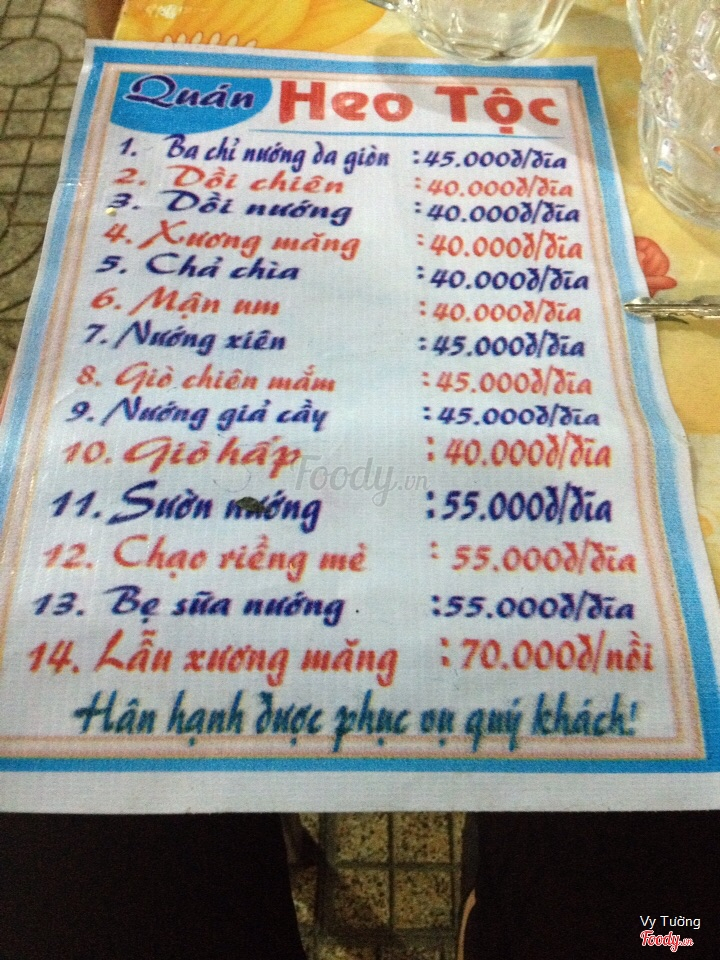 Quán Heo Tộc
1. Ba chỉ nướng da giòn :45.000đ/đĩa
2. Dồi chiên :40.000đ/đĩa
3. Dồi nướng :40.000đ/đĩa
4. Xương măng :40.000đ/đĩa
5. Chả chìa :40.000đ/đĩa
6. Mận um :40.000đ/đĩa
7. Nướng xiên :45.000đ/đĩa
8. Giò chiên mắm :45.000đ/đĩa
9. Nướng giả cầy :45.000đ/đĩa
10. Giò hấp :40.000đ/đĩa
Foody.vn
11. Sườn nướng :55.000đ/đĩa
12. Chạo riềng mè : 55.000đ/đĩa
13. Bẹ sữa nướng :55.000đ/đĩa
14. Lẩu xương măng : 70.000đ/nồi
Hân hạnh được phục vụ quý khách!
Vy Tường
Foody.vn